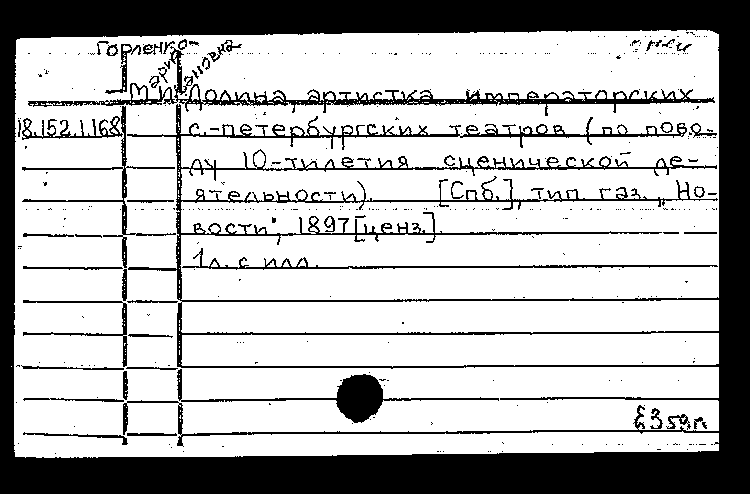 Горленко-
о ней
Мария
Ивановна
М.И. Долина, артистка императорских
18.152.1.168 с.-петербургских театров (по пово-
ду 10-тилетия сценической де-
ятельности). [Спб.], тип. газ. „Но-
вости", 1897 [ценз.].
1 л. с илл.